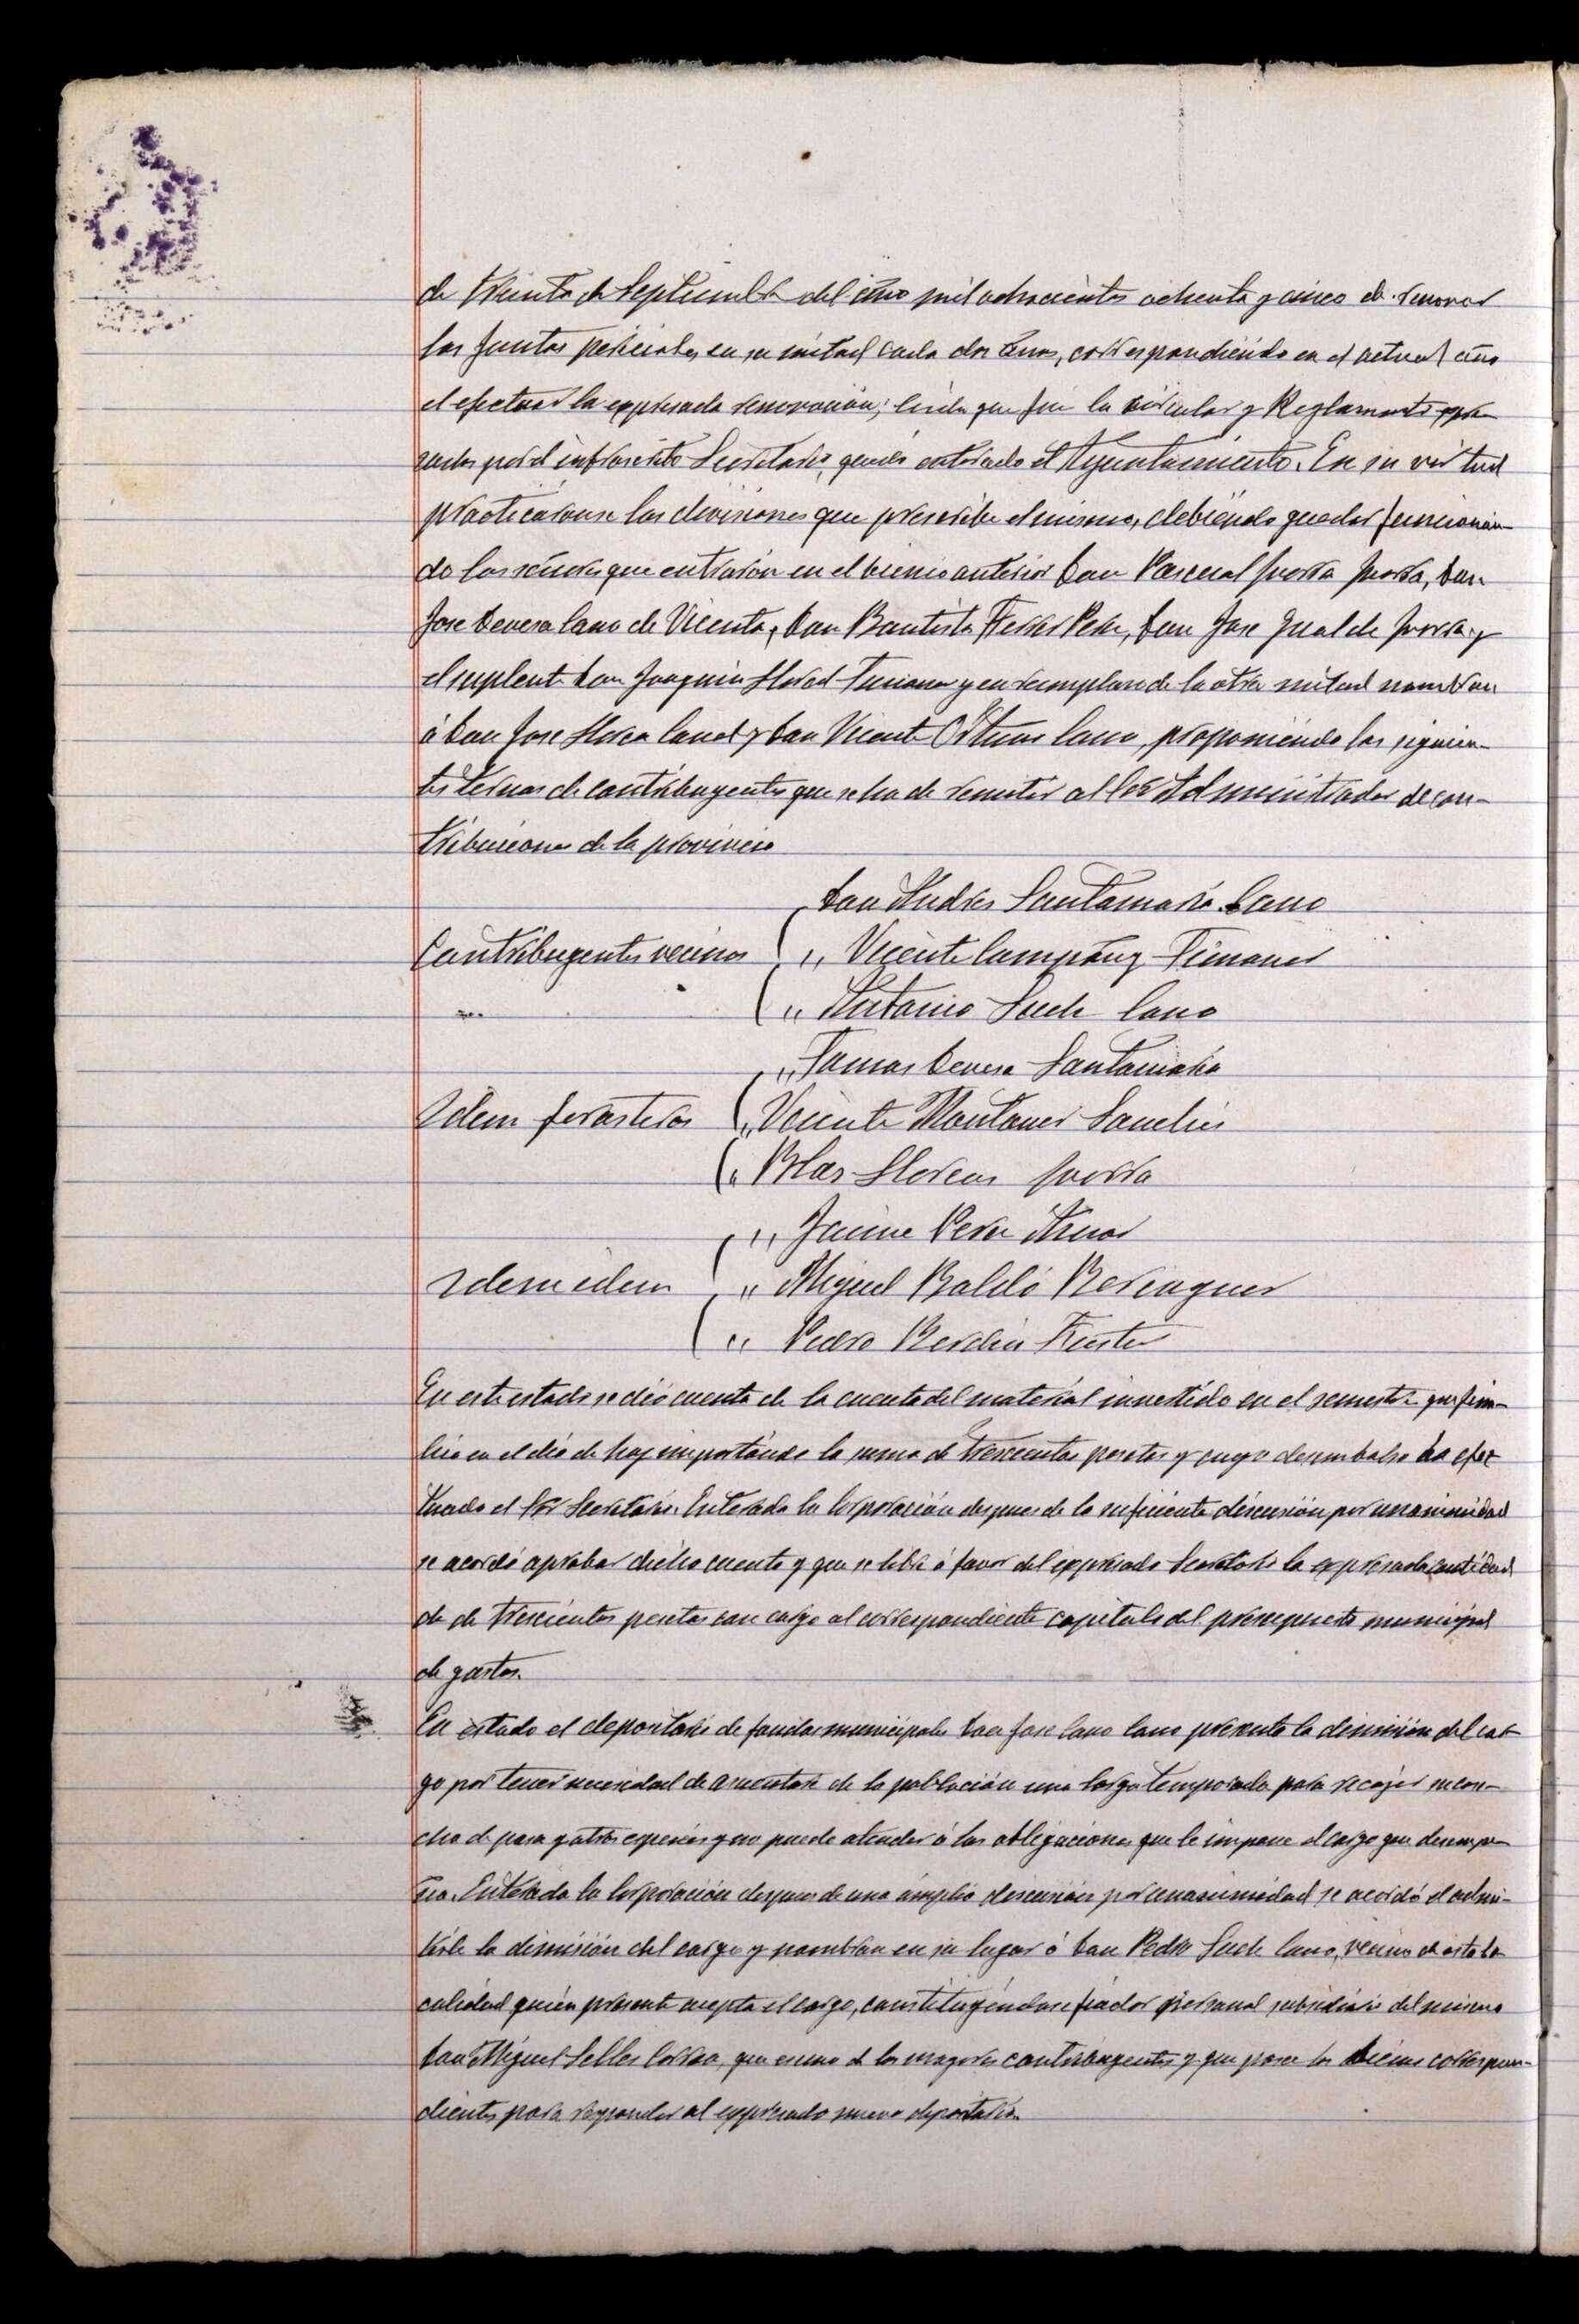 de treinta de Septiembre del año mil ochocientos ochenta y cinco de renovar
las Juntas periciales en su mitad cada dos años, correspondiendo en el actual año
el efectuar la expresada renovación; leida que fue la circular y Reglamento expre
sados por el infrascrito Secretario, quedó enterado el Ayuntamiento. En su virtud
practicaronse las divisiones que prescribe el mismo, debiendo quedar funcionan-
do los señores que entraron en el bienio anterior Don Pascual Ivorra Ivorra, Don
Jose Devesa Cano de Vicente, Don Bautista Ferrer Pere, Don Jose Gualde Ivorra y
el suplente Don Joaquin Lloret y en reemplazo de la otra mitad nombran
á Don Jose Llorca Canet y Don Vicente Cano, proponiendo las siguien-
tes ternas de contribuyentes que se ha de remitir al Sor Administrador de con-
tribuciones de la provincia
Don Andres Santamaria Cano
Contribuyentes vecinos " Vicente Timoner
" Antonio Such Cano
" Tomas Devesa Santamaria
Idem forasteros " Vicente Montaner Sanchis
" Blas Llorens Ivorra
" Jaime Perez Aznar
Idem idem " Miguel Baldó Berenguer
" Pedro Berdin Fuster
En este estado se dió cuenta de la cuenta del material invertido en el semestre que fina-
liza en el dia de hoy importando la suma de trescientas pesetas y cuyo desembolso ha efec
tuado el Sor Secretario. Enterada la Corporación despues de la suficiente discusión por unanimidad
se acordó aprobar dicha cuenta y que se libre á favor del expresado Secretario la expresada cantidad
de de trescientas pesetas con cargo al correspondiente capitulo del presupuesto municipal
de gastos.
En estado el depositario de fondos municipales Don Jose Cano Cano presenta la dimisión del car
go por tener necesidad de ausentarse de la población una larga temporada para recojer su cose-
cha de pasa y otras especies y no puede atender á las obligaciones que le impone el cargo que desempe
ña. Enterada la Corporación despues de una amplia discusión por unanimidad se acordó el admi-
tirle la dimisión del cargo y nombran en su lugar á Don Pedro Such Cano, vecino de esta lo
calidad quién presente acepta el cargo, constituyéndose fiador personal subsidiario del mismo
Don Miguel Selles que es uno de los mayores contribuyentes y que posee los bienes correspon-
dientes para responder al expresado nuevo depositario.